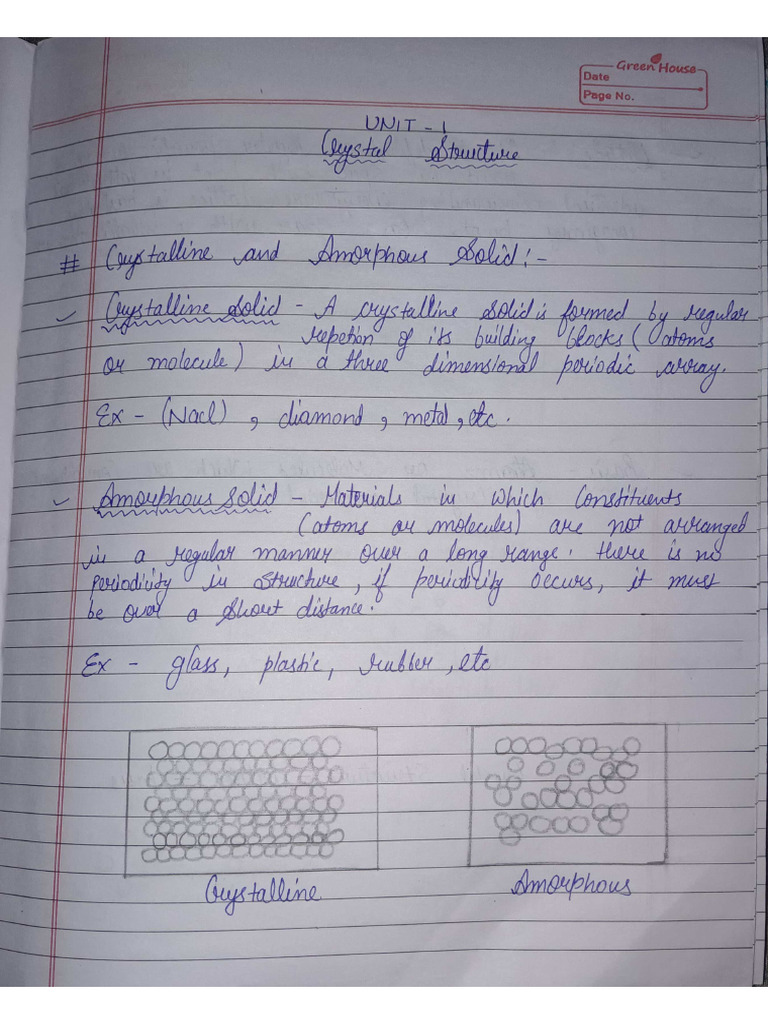 Green House
Date
Page No.
UNIT - 1
Crystal Structure
# Crystalline and Amorphous Solid:-
✓ Crystalline Solid - A crystalline solid is formed by regular
repetion of its building blocks (atoms
or molecule) in a three dimensional periodic array.
Ex - (Nacl), diamond, metal, etc.
✓ Amorphous solid - Materials in which constituents
(atoms or molecules) are not arranged
in a regular manner over a long range. there is no
periodicity in structure, if periodicity occurs, it must
be over a short distance.
Ex - glass, plastic, rubber, etc
Crystalline
Amorphous